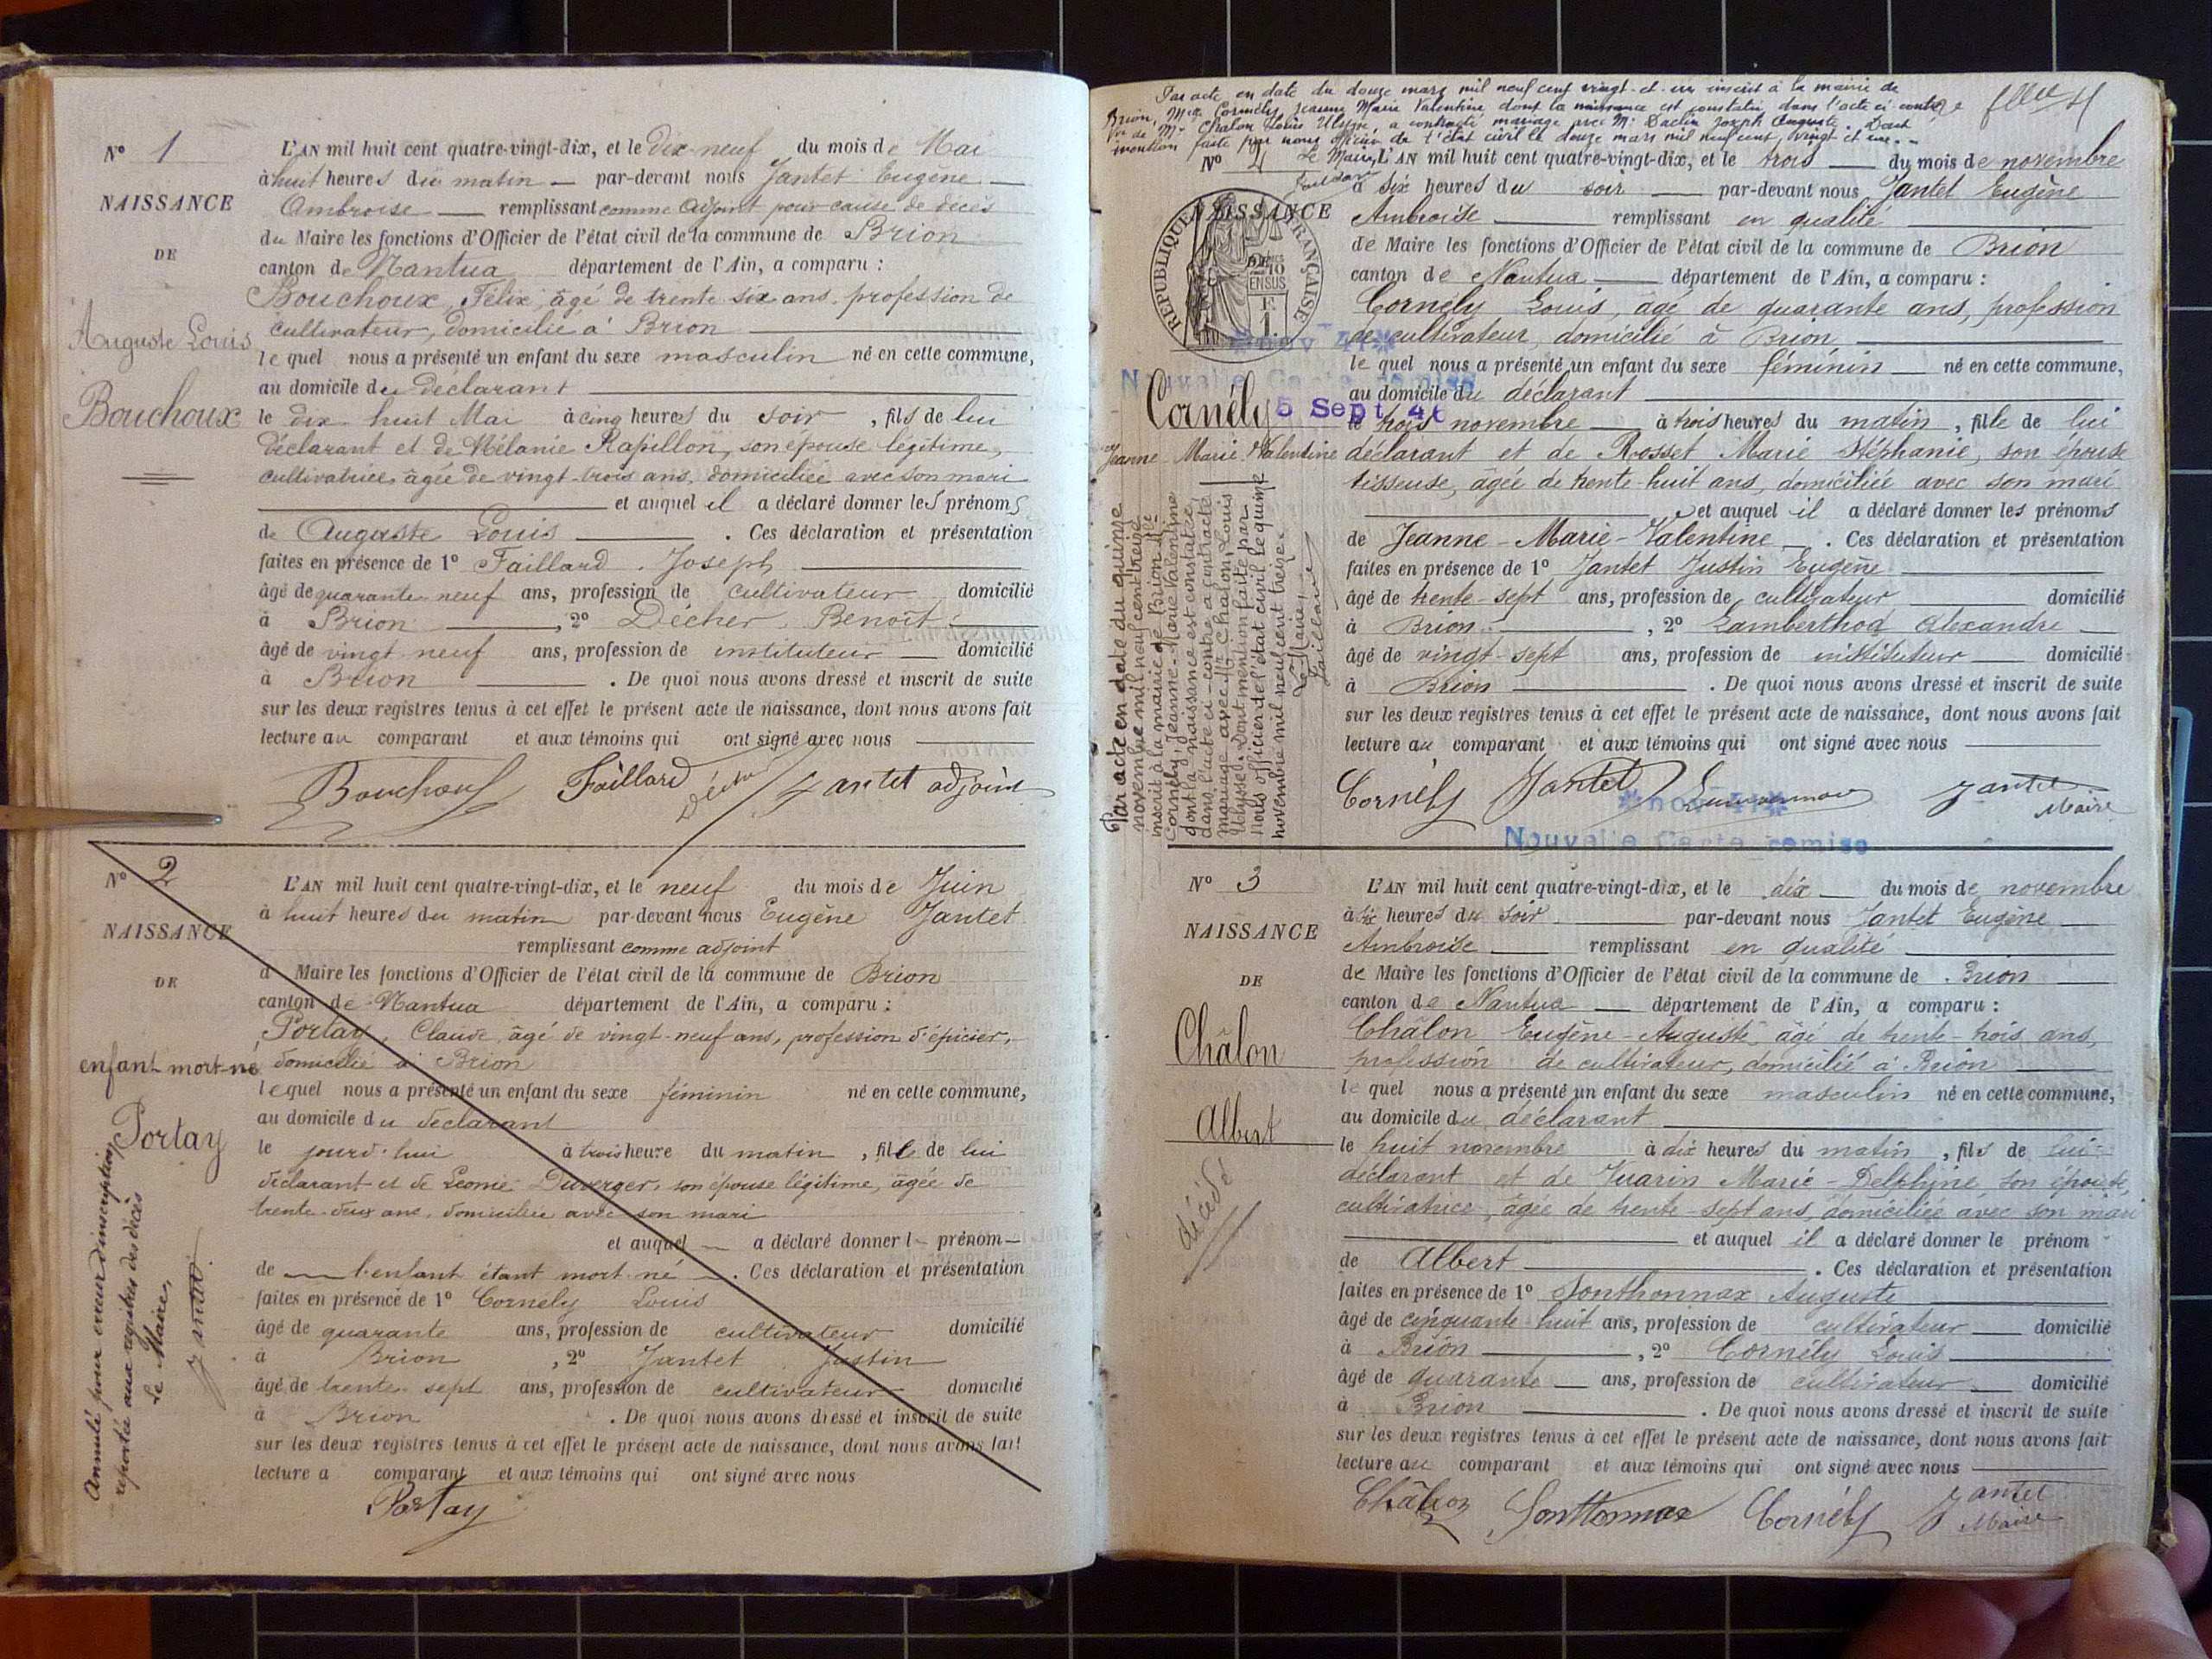 N° 1
NAISSANCE
DE
Auguste Louis
Bouchoux
L'AN mil huit cent quatre-vingt-dix, et le dix-neuf du mois de Mai
à huit heures du matin par-devant nous Jantet Eugène
Ambroise remplissant comme adjoint pour cause de décès
du Maire les fonctions d'Officier de l'état civil de la commune de Brion
canton de Nantua département de l'Ain, a comparu :
Bouchoux, Félix, âgé de trente six ans, profession de
cultivateur, domicilié à Brion
lequel nous a présenté un enfant du sexe masculin né en cette commune,
au domicile du déclarant
le dix huit Mai à cinq heures du soir, fils de lui
déclarant et de Mélanie Rapillon, son épouse légitime,
cultivatrice, âgée de vingt-trois ans, domiciliée avec son mari
et auquel il a déclaré donner les prénoms
de Auguste Louis. Ces déclaration et présentation
faites en présence de 1° Faillard Joseph
âgé de quarante neuf ans, profession de cultivateur domicilié
à Brion, 2° Décher Benoît
âgé de vingt neuf ans, profession de instituteur domicilié
à Brion. De quoi nous avons dressé et inscrit de suite
sur les deux registres tenus à cet effet le présent acte de naissance, dont nous avons fait
lecture au comparant et aux témoins qui ont signé avec nous
Bouchoux Faillard Décher Jantet adjoint
N° 2
NAISSANCE
DE
enfant mort-né
Portay
Annulé pour erreur d'inscription
reportée aux registres des décès
Le Maire,
Jantet
L'AN mil huit cent quatre-vingt-dix, et le neuf du mois de Juin
à huit heures du matin par-devant nous Eugène Jantet
remplissant comme adjoint
d Maire les fonctions d'Officier de l'état civil de la commune de Brion
canton de Nantua département de l'Ain, a comparu :
Portay, Claude, âgé de vingt-neuf ans, profession d'épicier,
domicilié à Brion
lequel nous a présenté un enfant du sexe féminin né en cette commune,
au domicile du déclarant
le jourd'hui à trois heure du matin, fille de lui
déclarant et de Léonie Duverger, son épouse légitime, âgée de
trente-deux ans, domiciliée avec son mari
et auquel a déclaré donner l prénom
de l'enfant étant mort-né. Ces déclaration et présentation
faites en présence de 1° Cornély Louis
âgé de quarante ans, profession de cultivateur domicilié
à Brion, 2° Jantet Justin
âgé de trente sept ans, profession de cultivateur domicilié
à Brion. De quoi nous avons dressé et inscrit de suite
sur les deux registres tenus à cet effet le présent acte de naissance, dont nous avons fait
lecture a comparant et aux témoins qui ont signé avec nous
Portay
Par acte en date du douze mars mil neuf cent vingt-et-un inscrit à la mairie de
Brion, Mme Cornély Jeanne Marie Valentine dont la naissance est constatée dans l'acte ci-contre
Vve de Mr Chalon Louis Ulysse, a contracté mariage avec Mr Daclin Joseph Auguste. Dont
mention faite par nous officier de l'état civil le douze mars mil neuf cent vingt et un.
Le Maire,
N°
NAISSANCE
RÉPUBLIQUE FRANÇAISE
Cornély
Jeanne Marie Valentine
nov 41
Nouvelle Carte remise
5 Sept 46
Par acte en date du quinze
novembre mil neuf cent treize
inscrit à la mairie de Brion, Mlle
Cornély, Jeanne-Marie Valentine
dont la naissance est constatée
dans l'acte ci-contre a contracté
mariage avec Mr Chalon Louis
Ulysse. Dont mention faite par
Nous officier de l'état civil le quinze
novembre mil neuf cent treize.
Le Maire,
Faillard
L'AN mil huit cent quatre-vingt-dix, et le trois du mois de novembre
à six heures du soir par-devant nous Jantet Eugène
Ambroise remplissant en qualité
de Maire les fonctions d'Officier de l'état civil de la commune de Brion
canton de Nantua département de l'Ain, a comparu :
Cornély Louis, âgé de quarante ans, profession
de cultivateur, domicilié à Brion
lequel nous a présenté un enfant du sexe féminin né en cette commune,
au domicile du déclarant
le trois novembre à trois heures du matin, fille de lui
déclarant et de Rosset Marie Stéphanie, son épouse
tisseuse, âgée de trente-huit ans, domiciliée avec son mari
et auquel il a déclaré donner les prénoms
de Jeanne-Marie-Valentine. Ces déclaration et présentation
faites en présence de 1° Jantet Justin Eugène
âgé de trente-sept ans, profession de cultivateur domicilié
à Brion, 2° Lamberthod Alexandre
âgé de vingt-sept ans, profession de instituteur domicilié
à Brion. De quoi nous avons dressé et inscrit de suite
sur les deux registres tenus à cet effet le présent acte de naissance, dont nous avons fait
lecture au comparant et aux témoins qui ont signé avec nous
Cornély Jantet Jantet Maire
nov 41
Nouvelle Carte remise
N° 3
NAISSANCE
DE
Châlon
Albert
décédé
L'AN mil huit cent quatre-vingt-dix, et le dix du mois de novembre
à six heures du soir par-devant nous Jantet Eugène
Ambroise remplissant en qualité
de Maire les fonctions d'Officier de l'état civil de la commune de Brion
canton de Nantua département de l'Ain, a comparu :
Châlon Eugène-Auguste, âgé de trente-trois ans,
profession de cultivateur, domicilié à Brion
lequel nous a présenté un enfant du sexe masculin né en cette commune,
au domicile du déclarant
le huit novembre à dix heures du matin, fils de lui
déclarant et de Juarin Marie-Delphine son épouse,
cultivatrice, âgée de trente-sept ans, domiciliée avec son mari
et auquel il a déclaré donner le prénom
de Albert. Ces déclaration et présentation
faites en présence de 1° Sonthonnax Auguste
âgé de cinquante-huit ans, profession de cultivateur domicilié
à Brion, 2° Cornély Louis
âgé de quarante ans, profession de cultivateur domicilié
à Brion. De quoi nous avons dressé et inscrit de suite
sur les deux registres tenus à cet effet le présent acte de naissance, dont nous avons fait
lecture au comparant et aux témoins qui ont signé avec nous
Châlon Sonthonnax Cornély Jantet Maire